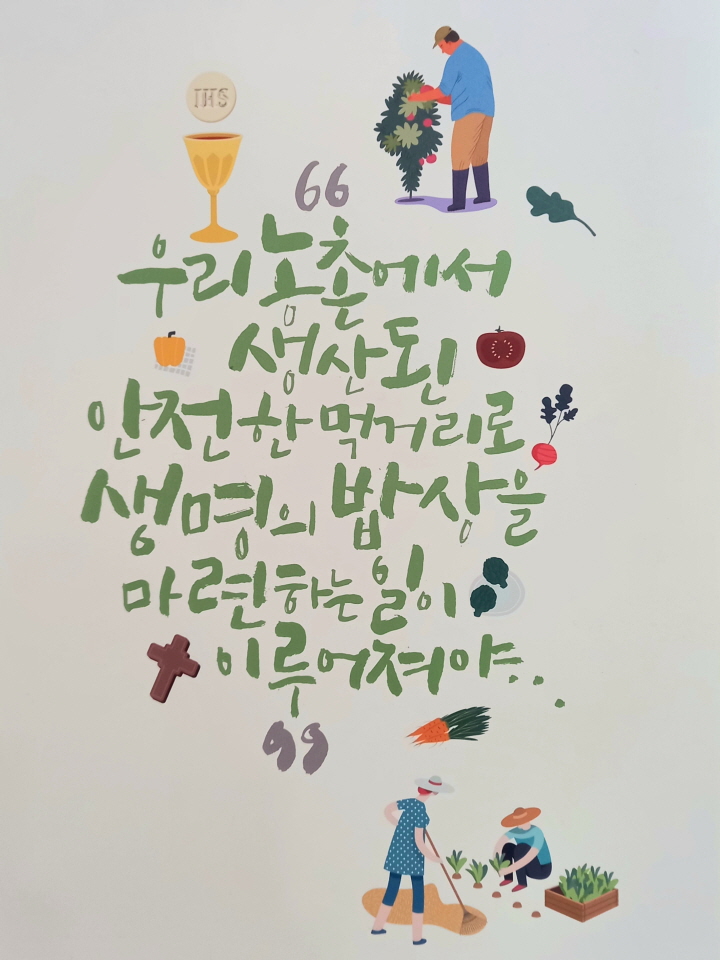 IHS
“
우리 농촌에서
생산된
안전한 먹거리로
생명의 밥상을
마련하는 일이
이루어져야...
”